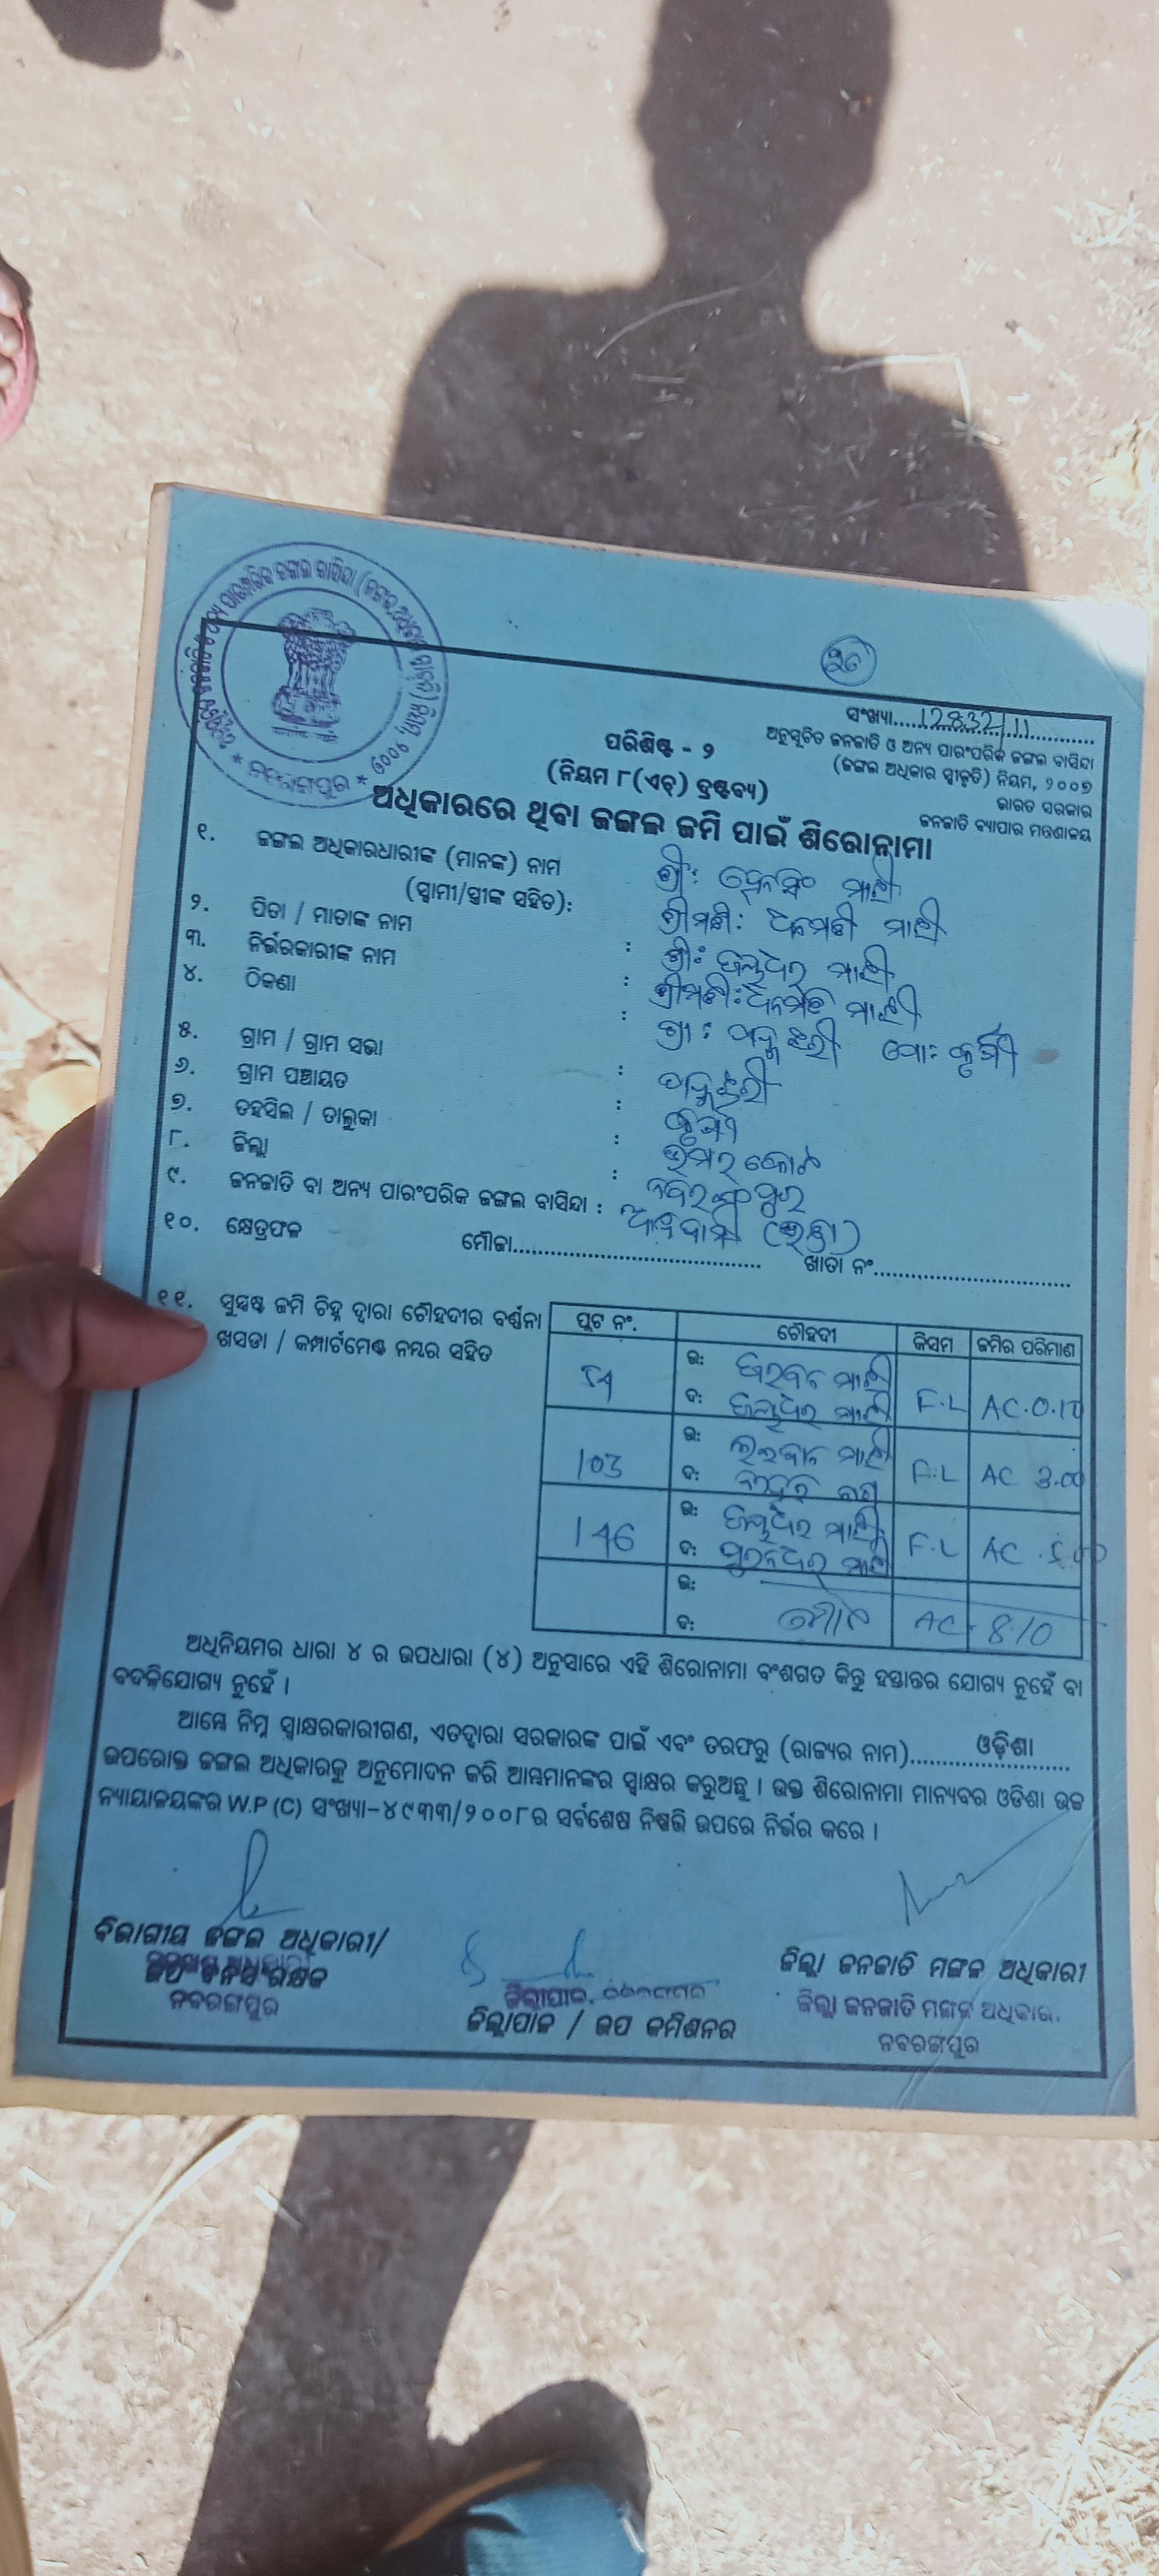 ସଂଖ୍ୟା......12832/11......
ଅନୁସୂଚିତ ଜନଜାତି ଓ ଅନ୍ୟ ପାରଂପରିକ ଜଙ୍ଗଲ ବାସିନ୍ଦା
(ଜଙ୍ଗଲ ଅଧିକାର ସ୍ୱୀକୃତି) ନିୟମ, ୨୦୦୭
ଭାରତ ସରକାର
ଜନଜାତି ବ୍ୟାପାର ମନ୍ତ୍ରଣାଳୟ
ପରିଶିଷ୍ଟ - ୨
(ନିୟମ ୮(ଏଚ୍) ଦ୍ରଷ୍ଟବ୍ୟ)
ଅଧିକାରରେ ଥିବା ଜଙ୍ଗଲ ଜମି ପାଇଁ ଶିରୋନାମା
୧. ଜଙ୍ଗଲ ଅଧିକାରଧାରୀଙ୍କ (ମାନଙ୍କ) ନାମ ଶ୍ରୀ: ମାଝୀ
(ସ୍ୱାମୀ/ସ୍ତ୍ରୀଙ୍କ ସହିତ): ଶ୍ରୀମତୀ: ଧନମତୀ ମାଝୀ
୨. ପିତା / ମାତାଙ୍କ ନାମ : ଶ୍ରୀ: ମାଝୀ
୩. ନିର୍ଭରକାରୀଙ୍କ ନାମ : ଶ୍ରୀମତୀ: ଧନମତି ମାଝୀ
୪. ଠିକଣା : ଗ୍ରା: ପୋ:
୫. ଗ୍ରାମ / ଗ୍ରାମ ସଭା :
୬. ଗ୍ରାମ ପଞ୍ଚାୟତ :
୭. ତହସିଲ / ତାଲୁକା : ଉମରକୋଟ
୮. ଜିଲ୍ଲା : ନବରଙ୍ଗପୁର
୯. ଜନଜାତି ବା ଅନ୍ୟ ପାରଂପରିକ ଜଙ୍ଗଲ ବାସିନ୍ଦା : ଆଦିବାସୀ
୧୦. କ୍ଷେତ୍ରଫଳ ମୌଜା.............................. ଖାତା ନଂ..............................
୧୧. ସୁସ୍ପଷ୍ଟ ଜମି ଚିହ୍ନ ଦ୍ୱାରା ଚୌହଦୀର ବର୍ଣ୍ଣନା
ଖସଡା / କମ୍ପାର୍ଟମେଣ୍ଟ ନମ୍ବର ସହିତ
ପ୍ଲଟ ନଂ. ଚୌହଦୀ କିସମ ଜମିର ପରିମାଣ
ଉ: ମାଝୀ
ଦ: ମାଝୀ F.L AC.0.10
103 ଉ: ମାଝୀ F.L AC 3.00
ଦ:
146 ଉ: ମାଝୀ F.L AC 5.00
ଦ: ମାଝୀ
ଉ:
ଦ: ମୋଟ AC. 8.10
ଅଧିନିୟମର ଧାରା ୪ ର ଉପଧାରା (୪) ଅନୁସାରେ ଏହି ଶିରୋନାମା ବଂଶଗତ କିନ୍ତୁ ହସ୍ତାନ୍ତର ଯୋଗ୍ୟ ନୁହେଁ ବା
ବଦଳିଯୋଗ୍ୟ ନୁହେଁ ।
ଆମ୍ଭେ ନିମ୍ନ ସ୍ୱାକ୍ଷରକାରୀଗଣ, ଏତଦ୍ଦ୍ୱାରା ସରକାରଙ୍କ ପାଇଁ ଏବଂ ତରଫରୁ (ରାଜ୍ୟର ନାମ)......ଓଡ଼ିଶା......
ଉପରୋକ୍ତ ଜଙ୍ଗଲ ଅଧିକାରକୁ ଅନୁମୋଦନ କରି ଆମ୍ଭମାନଙ୍କର ସ୍ୱାକ୍ଷର କରୁଅଛୁ । ଉକ୍ତ ଶିରୋନାମା ମାନ୍ୟବର ଓଡିଶା ଉଚ୍ଚ
ନ୍ୟାୟାଳୟଙ୍କର W.P (C) ସଂଖ୍ୟା-୪୯୩୩/୨୦୦୮ର ସର୍ବଶେଷ ନିଷ୍ପତ୍ତି ଉପରେ ନିର୍ଭର କରେ ।
ବିଭାଗୀୟ ଜଙ୍ଗଲ ଅଧିକାରୀ/
ଉପ ବନସଂରକ୍ଷକ
ନବରଙ୍ଗପୁର
ଜିଲ୍ଲାପାଳ / ଉପ କମିଶନର
ଜିଲ୍ଲା ଜନଜାତି ମଙ୍ଗଳ ଅଧିକାରୀ
ଜିଲ୍ଲା ଜନଜାତି ମଙ୍ଗଳ ଅଧିକାରୀ
ନବରଙ୍ଗପୁର